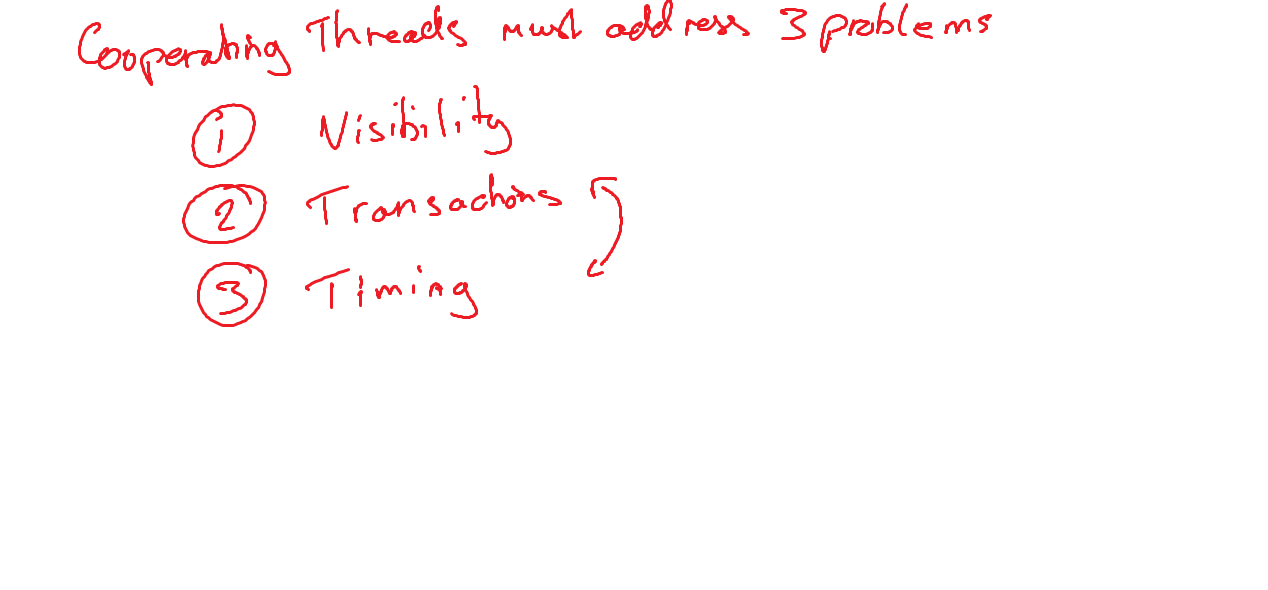 Cooperating Threads must address 3 problems
1 Visibility
2 Transactions
3 Timing